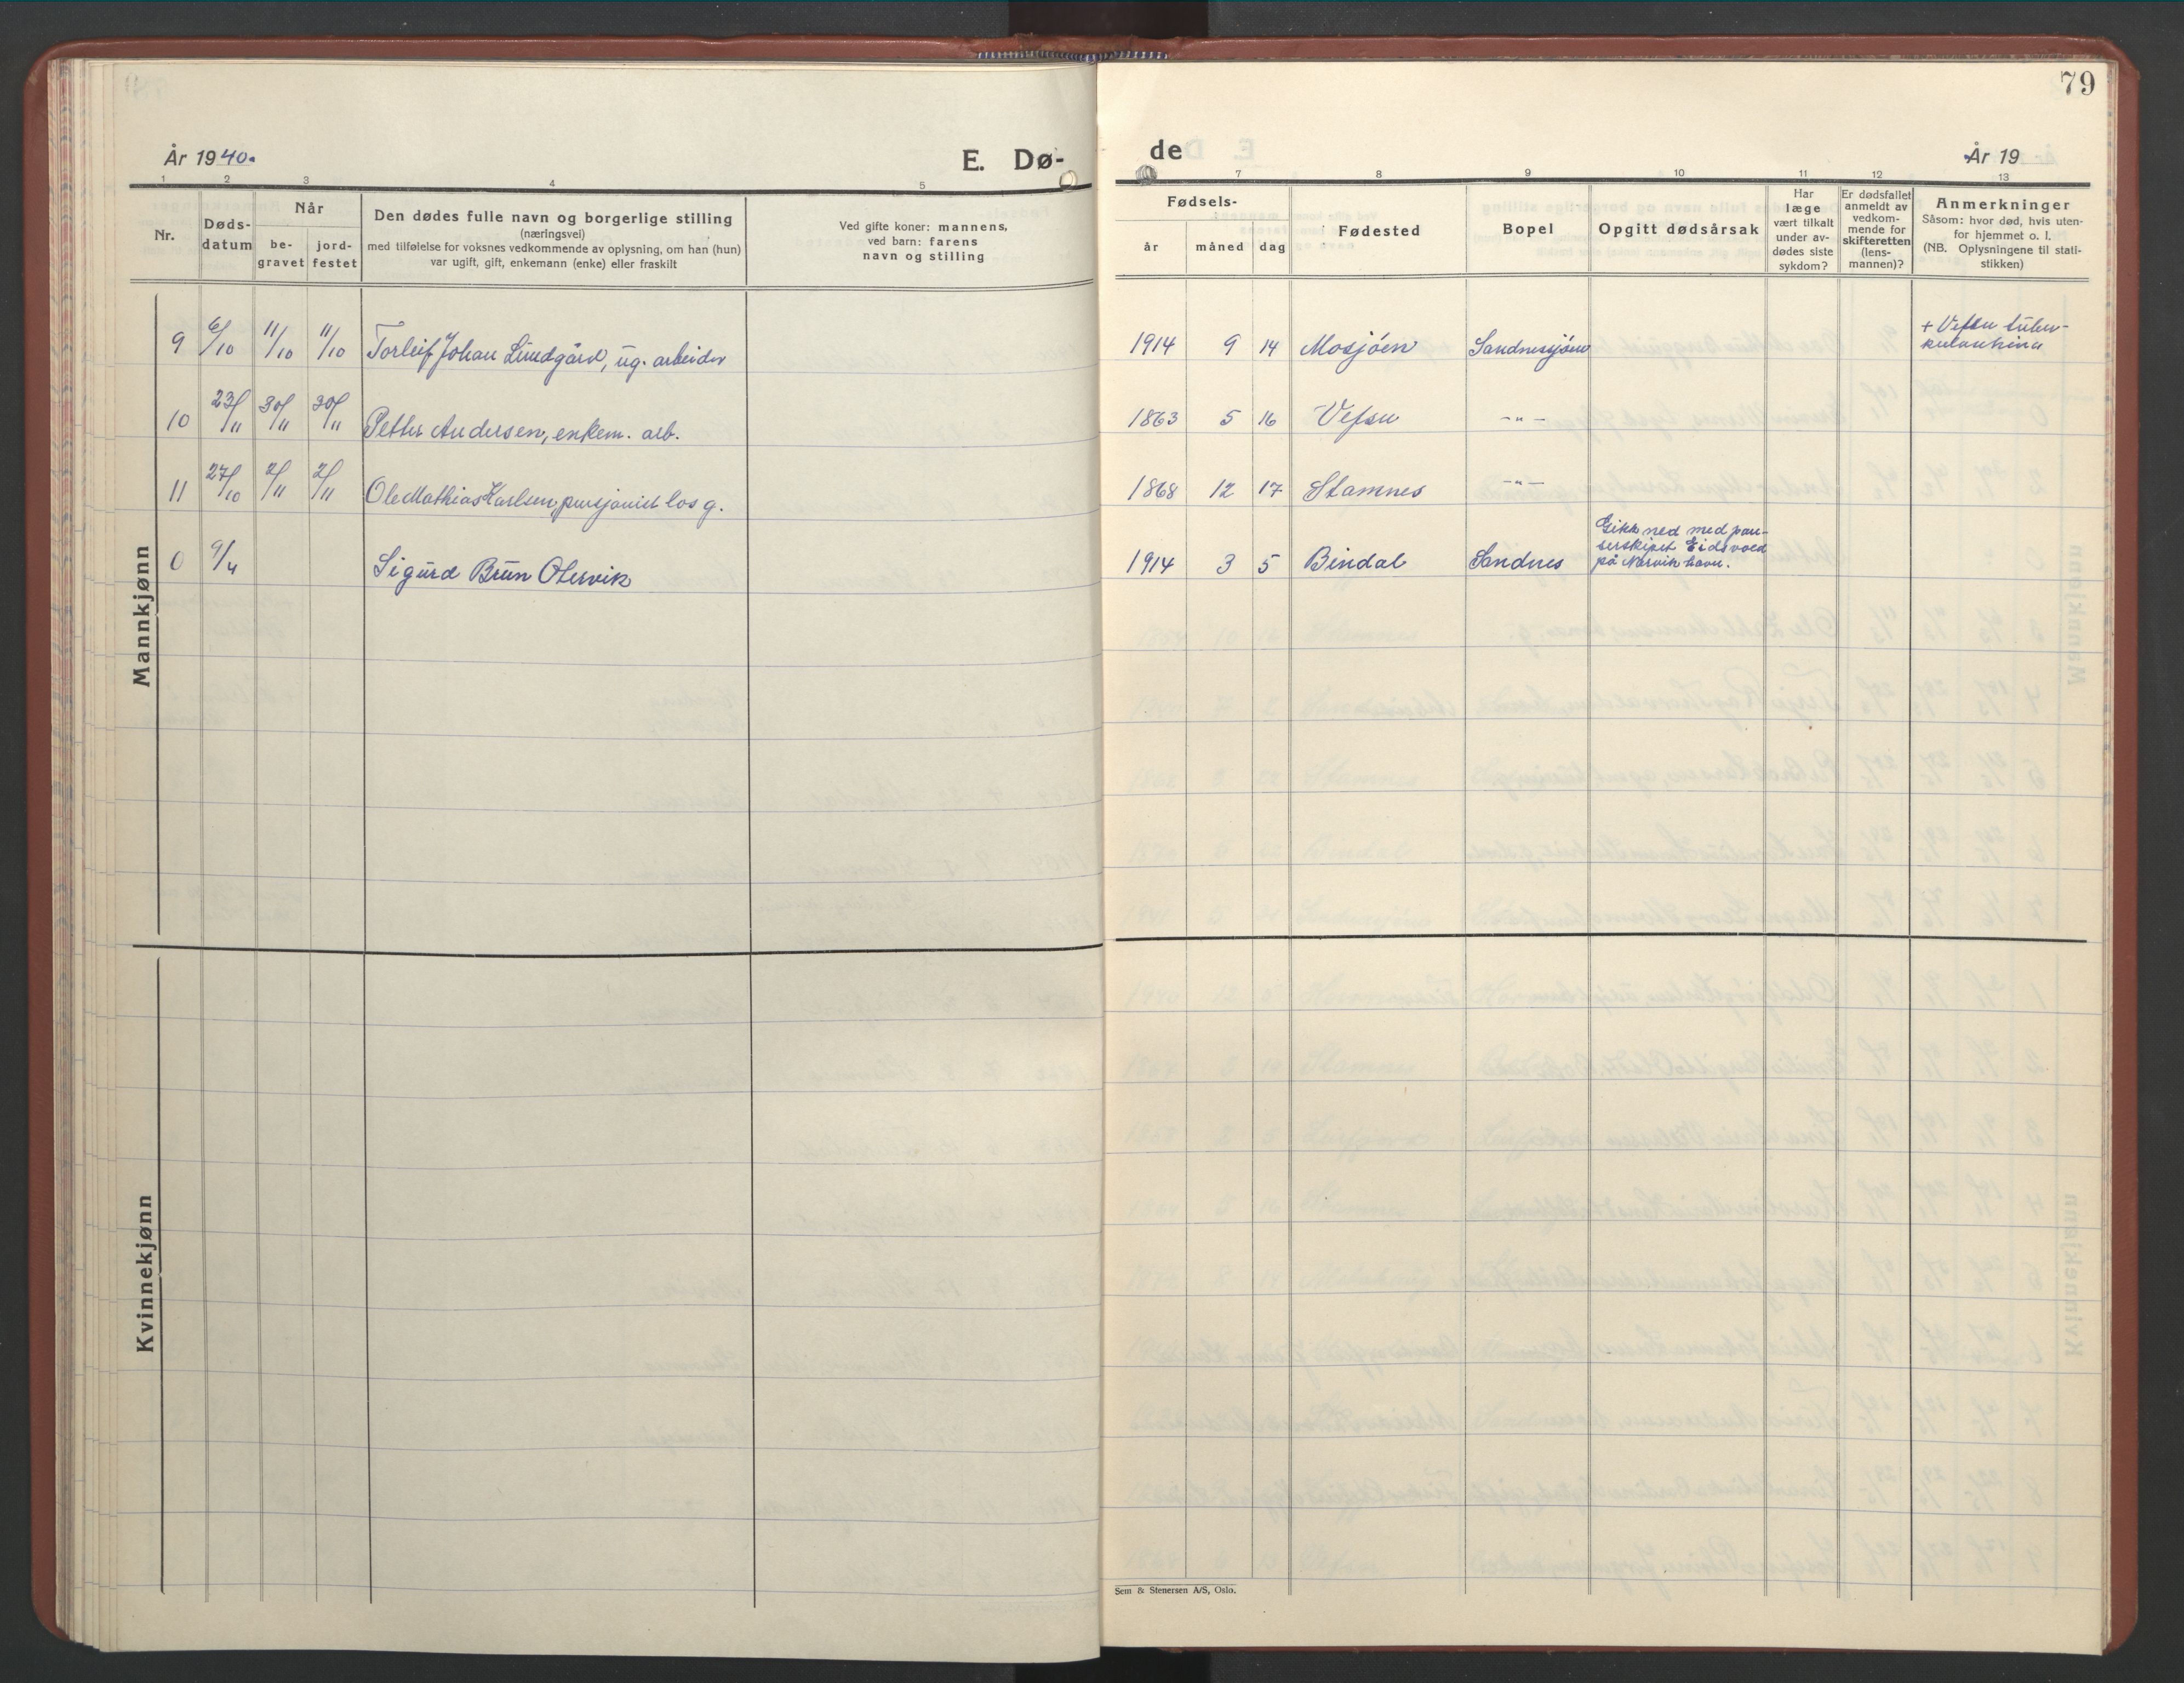 79
År 1940.
E. Dø-
de
År 19
1 2 3 4 5 7 8 9 10 11 12 13
Nr.
Døds-
datum
Når
be-
gravet
jord-
festet
Den dødes fulle navn og borgerlige stilling
(næringsvei)
med tilføielse for voksnes vedkommende av oplysning, om han (hun)
var ugift, gift, enkemann (enke) eller fraskilt
Ved gifte koner: mannens,
ved barn: farens
navn og stilling
Fødsels-
år måned dag
Fødested
Bopel
Opgitt dødsårsak
Har
læge
vært tilkalt
under av-
dødes siste
sykdom?
Er dødsfallet
anmeldt av
vedkom-
mende for
skifteretten
(lens-
mannen)?
Anmerkninger
Såsom: hvor død, hvis uten-
for hjemmet o. l.
(NB. Oplysningene til stati-
stikken)
Mannkjønn
9 6/10 11/10 11/10 Torleif Johan Lundgård, ug. arbeider 1914 9 14 Mosjöen Sandnessjöen
+ Vefsn tuber-
10 23/11 30/11 30/11 Petter Andersen, enkem. arb. 1863 5 16 Vefsn -"-
11 27/10 2/11 2/11 Ole Mathias Karlsen, pensjonist los g. 1868 12 17 Stamnes -"-
0 9/4 Sigurd Brun Olervik 1914 3 5 Bindal Sandnes
Gikk ned med pan-
serskipet Eidsvold
på Narvik havn.
Kvinnekjønn
Sem & Stenersen A/S, Oslo.